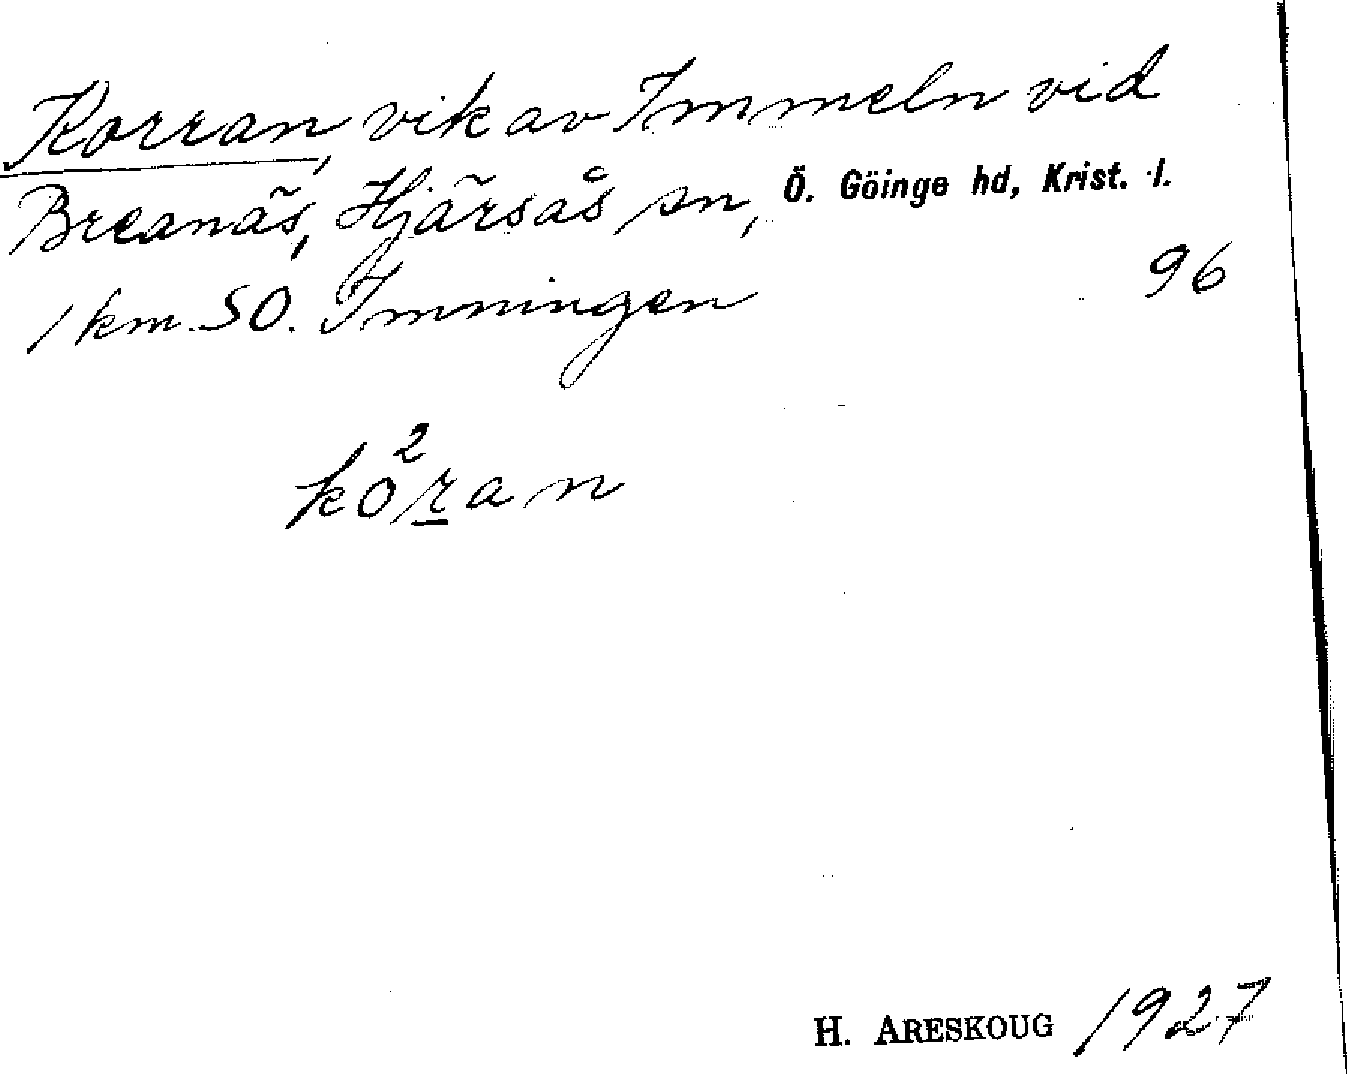 Korran, vik av Immeln vid
Breanäs, Hjärsås sn, Ö. Göinge hd, Krist. l.
1 km. SO. Imningen 96
ko²ran
H. ARESKOUG 1927